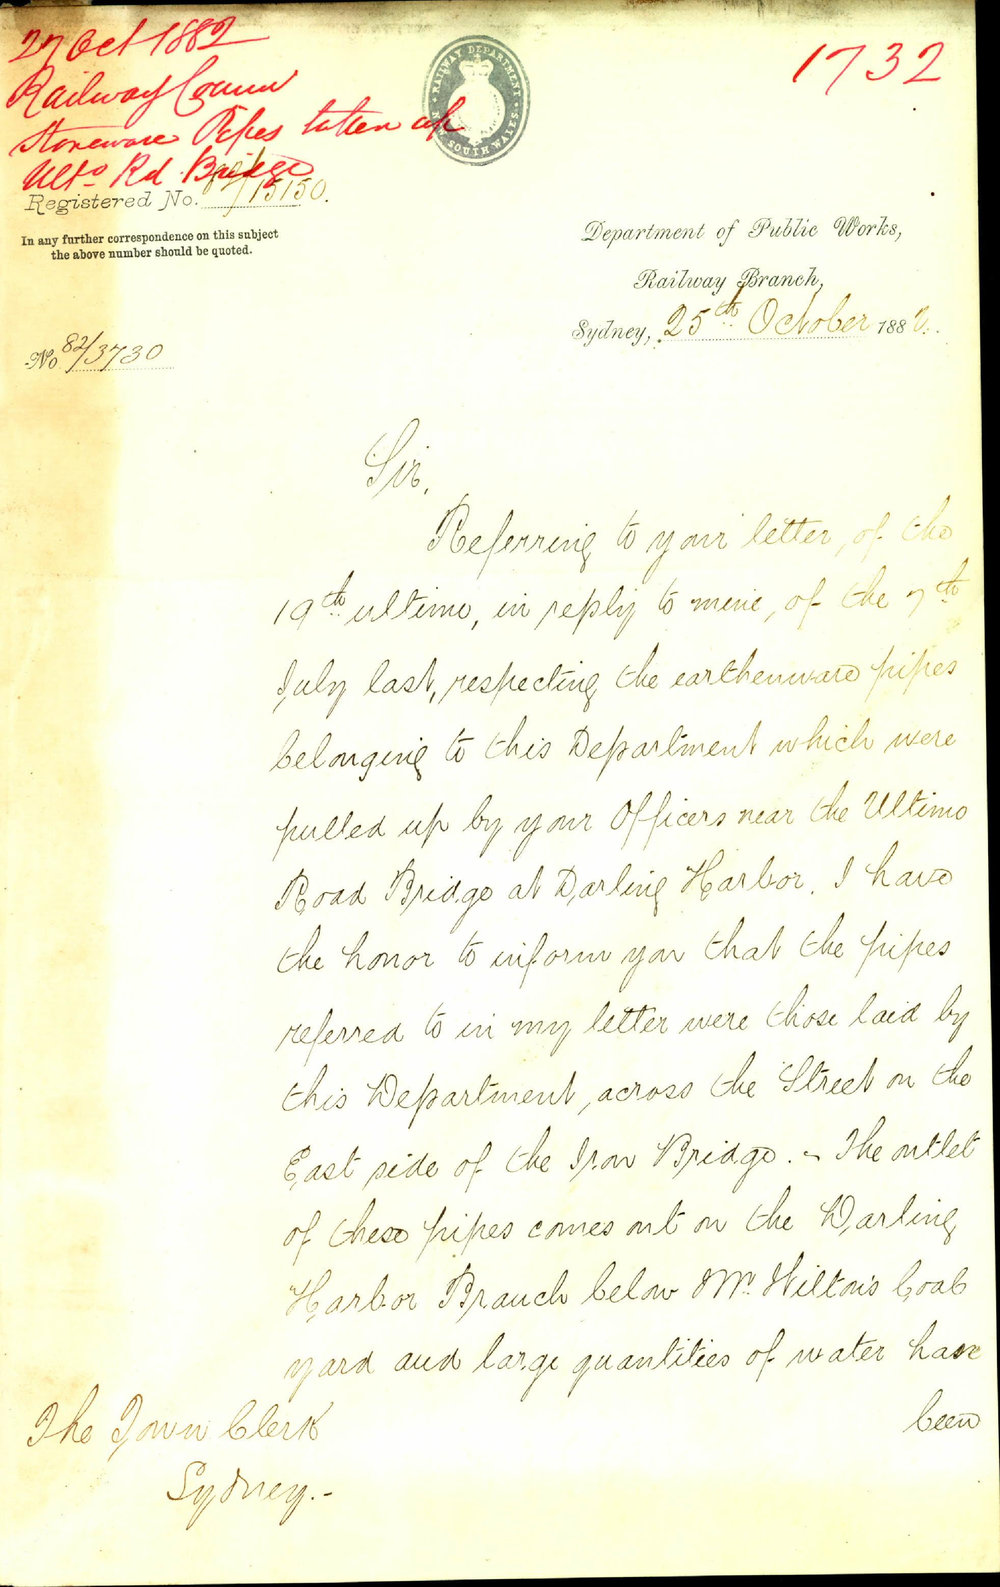 27 Oct 1882
Railway Comr
Stoneware Pipes taken up
Ulto Rd Bridge
1732
RAILWAY DEPARTMENT
NEW SOUTH WALES
Registered No. 82/15150.
In any further correspondence on this subject
the above number should be quoted.
Department of Public Works,
Railway Branch,
Sydney, 25th October 1882.
No 82/3730
Sir,
Referring to your letter, of the
19th ultimo, in reply to mine, of the 7th
July last, respecting the earthenware pipes
belonging to this Department which were
pulled up by your Officers near the Ultimo
Road Bridge at Darling Harbor. I have
the honor to inform you that the pipes
referred to in my letter were those laid by
this Department, across the Street on the
East side of the Iron Bridge. - The outlet
of these pipes comes out on the Darling
Harbor Branch below Mr. Wilton's Coal
yard and large quantities of water have
been
The Town Clerk
Sydney.-